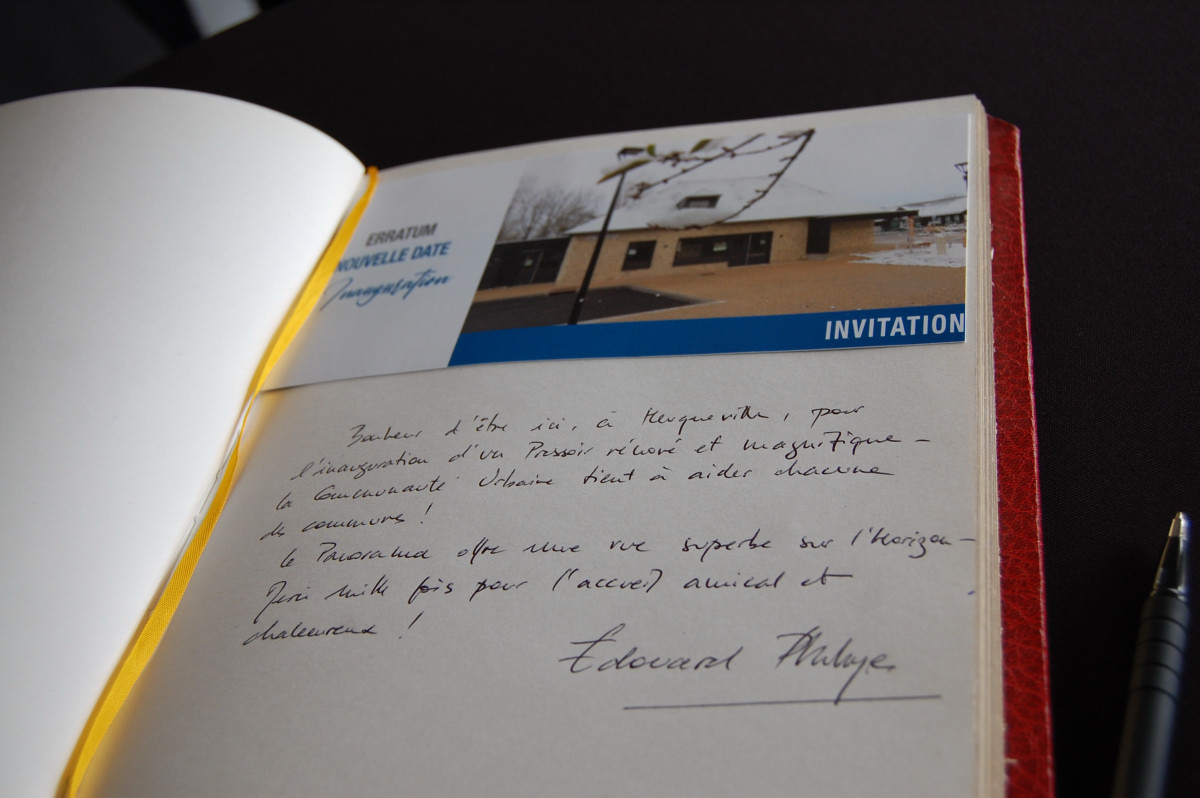 ERRATUM
NOUVELLE DATE
Inauguration
INVITATION
Bonheur d'être ici, à Herqueville, pour
l'inauguration d'un Pressoir rénové et magnifique –
la Communauté Urbaine tient à aider chacune
des communes !
Le Panorama offre une vue superbe sur l'Horizon –
Merci mille fois pour l'accueil amical et
chaleureux !
Edouard Philippe